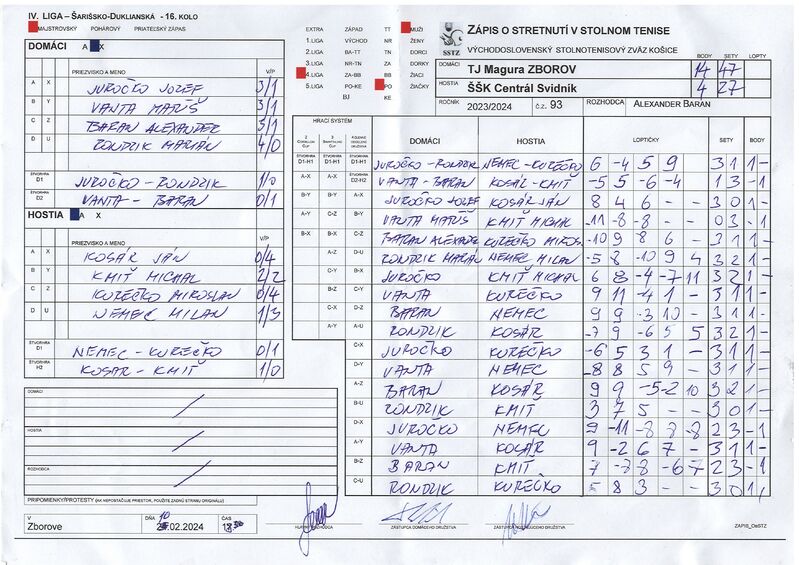 IV. LIGA – ŠARIŠSKO-DUKLIANSKÁ - 16. KOLO
MAJSTROVSKÝ POHÁROVÝ PRIATEĽSKÝ ZÁPAS
DOMÁCI A X
PRIEZVISKO A MENO V/P
A X JUROČKO JOZEF 3/1
B Y VANTA MATÚŠ 3/1
C Z BARAN ALEXANDER 3/1
D U RONDZIK MARIÁN 4/0
ŠTVORHRA D1 JUROČKO - RONDZIK 1/0
ŠTVORHRA D2 VANTA - BARAN 0/1
HOSTIA A X
PRIEZVISKO A MENO V/P
A X KOSÁR JÁN 0/4
B Y KMIŤ MICHAL 2/2
C Z KUREČKO MIROSLAV 0/4
D U NEMEC MILAN 1/3
ŠTVORHRA D1 NEMEC - KUREČKO 0/1
ŠTVORHRA H2 KOSÁR - KMIŤ 1/0
DOMÁCI
HOSTIA
ROZHODCA
PRIPOMIENKY/PROTESTY (AK NEPOSTAČUJE PRIESTOR, POUŽITE ZADNÚ STRANU ORIGINÁLU)
V Zborove DŇA 10 .02.2024 ČAS
EXTRA ZÁPAD TT MUŽI
1.LIGA VÝCHOD NR ŽENY
2.LIGA BA-TT TN DORCI
3.LIGA NR-TN ZA DORKY
4.LIGA ZA-BB BB ŽIACI
5.LIGA PO-KE PO ŽIAČKY
BJ KE
SSTZ
ZÁPIS O STRETNUTÍ V STOLNOM TENISE
VÝCHODOSLOVENSKÝ STOLNOTENISOVÝ ZVÄZ KOŠICE
BODY SETY LOPTY
DOMÁCI TJ Magura ZBOROV 14 47
HOSTIA ŠŠK Centrál Svidník 4 27
ROČNÍK 2023/2024 č.z. 93 ROZHODCA ALEXANDER BARAN
HRACÍ SYSTÉM
DOMÁCI HOSTIA LOPTIČKY SETY BODY
ŠTVORHRA D1-H1 ŠTVORHRA D1-H1 ŠTVORHRA D1-H1 JUROČKO - RONDZIK NEMEC - KUREČKO 6 -4 5 9 3 1 1 -
A-X A-X ŠTVORHRA D2-H2 VANTA - BARAN KOSÁR - KMIŤ -5 5 -6 -4 1 3 - 1
B-Y B-Y A-X JUROČKO JOZEF KOSÁR JÁN 8 4 6 - - 3 0 1 -
A-Y C-Z B-Y VANTA MATÚŠ KMIŤ MICHAL -11 -8 -8 - - 0 3 - 1
B-X B-X C-Z BARAN ALEXANDER KUREČKO MIROS. -10 9 8 6 - 3 1 1 -
A-Z D-U RONDZIK MARIÁN NEMEC MILAN -5 8 -10 9 4 3 2 1 -
C-Y B-X JUROČKO KMIŤ MICHAL 6 8 -4 -7 11 3 2 1 -
B-Z C-Y VANTA KUREČKO 9 11 -4 1 - 3 1 1 -
C-X D-Z BARAN NEMEC 9 9 -3 10 - 3 1 1 -
A-Y A-U RONDZIK KOSÁR -7 9 -6 5 5 3 2 1 -
C-X JUROČKO KUREČKO -6 5 3 1 - 3 1 1 -
D-Y VANTA NEMEC -8 8 5 9 - 3 1 1 -
A-Z BARAN KOSÁR 9 9 -5 -2 10 3 2 1 -
B-U RONDZIK KMIŤ 3 7 5 - - 3 0 1 -
D-X JUROČKO NEMEC 9 -11 -8 8 -8 2 3 - 1
A-Y VANTA KOSÁR 9 -2 6 7 - 3 1 1 -
B-Z BARAN KMIŤ 7 -7 8 -6 -7 2 3 - 1
C-U RONDZIK KUREČKO 5 8 3 - - 3 0 1 -
HLAVNÝ ROZHODCA ZÁSTUPCA DOMÁCEHO DRUŽSTVA ZÁSTUPCA HOSŤUJÚCEHO DRUŽSTVA ZÁPIS_OeSTZ